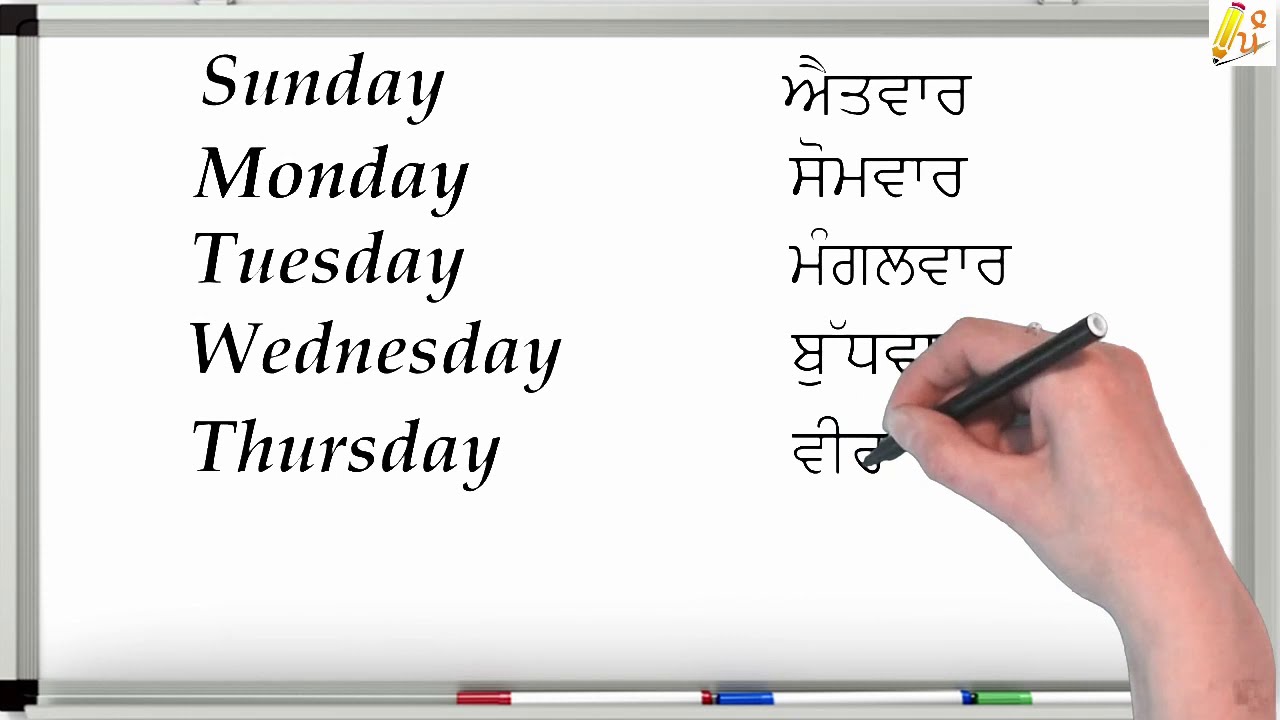 Sunday ਐਤਵਾਰ
Monday ਸੋਮਵਾਰ
Tuesday ਮੰਗਲਵਾਰ
Wednesday
Thursday